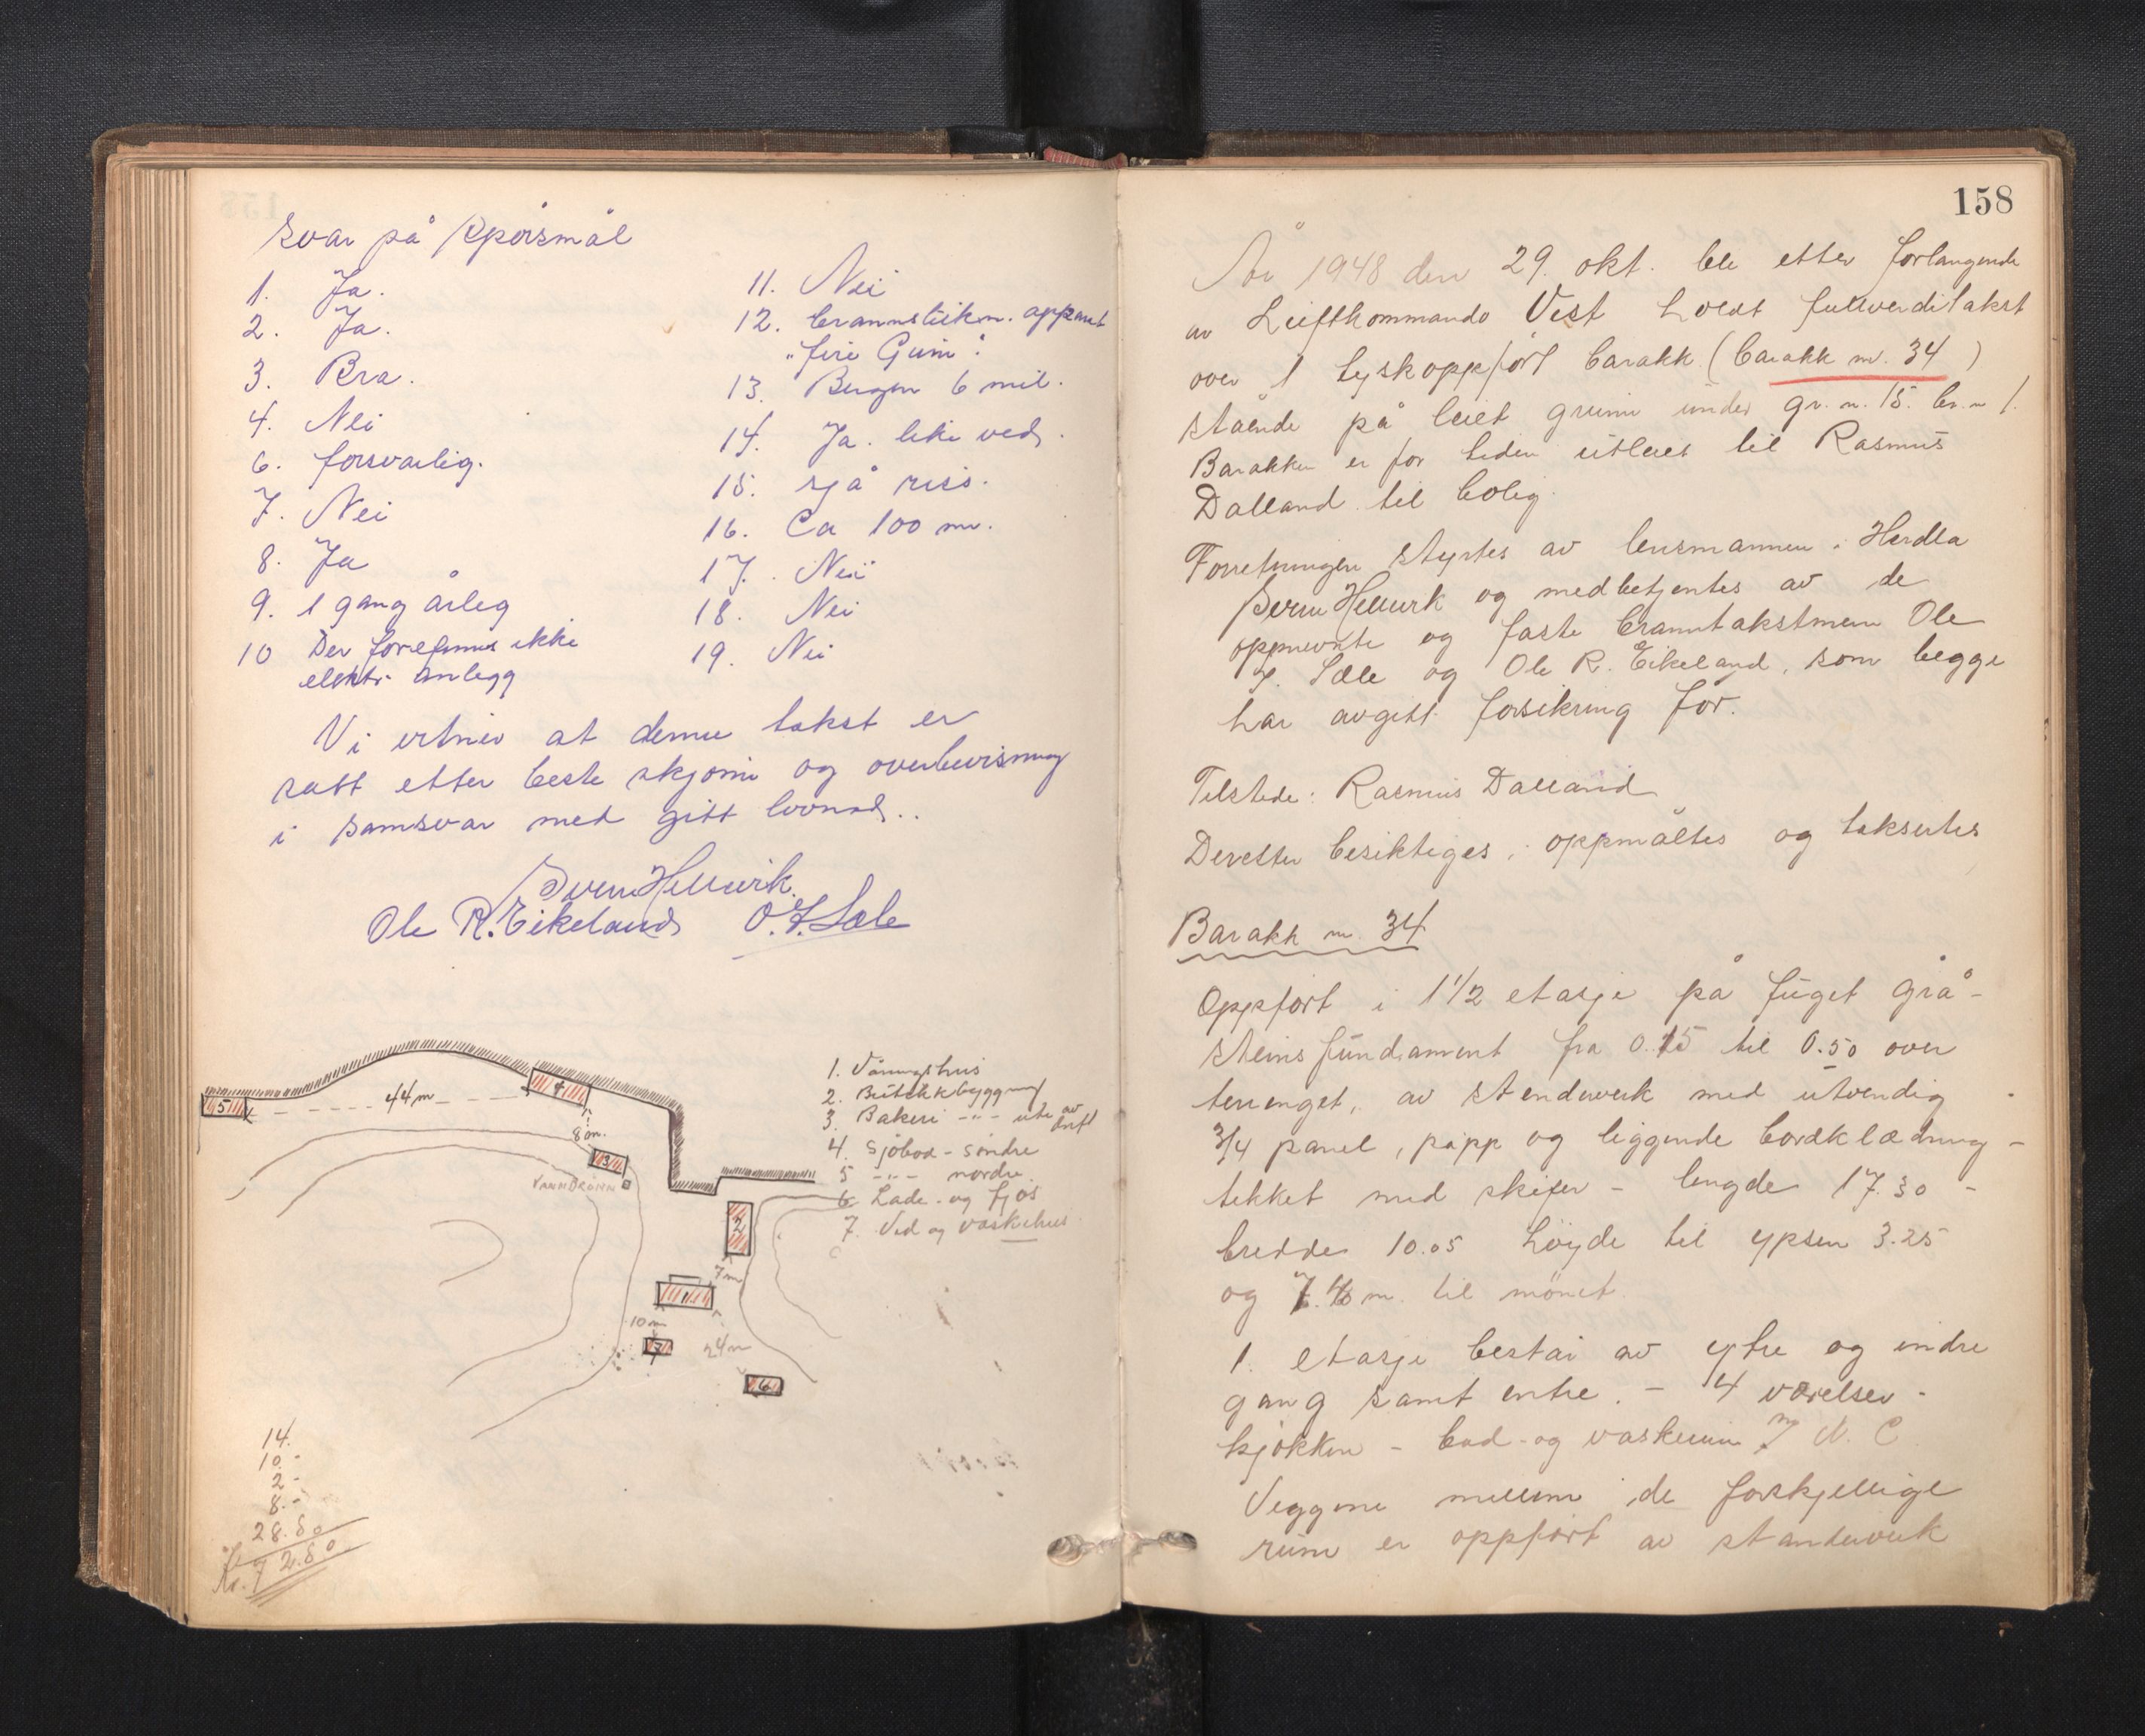 Svar på spörsmål
1. Ja.
2. Ja.
3. Bra.
4. Nei
6. forsvarlig.
7. Nei
8. Ja
9. 1 gang årleg
10 Der forefinnes ikke
elektr. anlegg
11. Nei
12. brannslukn. apparat
"fire Gun".
13. Bergen 6 mil.
14. Ja. ikke ved.
15. sjå riss.
16. Ca 100 m.
17. Nei
18. Nei
19. Nei
Vi vitner at denne takst er
satt etter beste skjönn og overbevisning
i samsvar med gitt lovnad..
Ole R. Eikeland O. J. Sæle
5
44 m
4
8 m.
3
Vannbrönn
2
7 m
1
10 m
7
24 m
6
1. Våningshus
2. Butikkbygging
3. Bakeri -"- ute av drift
4. Sjöbod - söndre
5 -"- nordre
6 Lade - og fjös
7. Ved og vaskehus
14.
10.-
2.-
8.-
28.80
Kr. 72.80
158
År 1948 den 29. okt. ble etter forlangende
av Luftkommando Vest holdt fullverditakst
over 1 tyskoppfört barakk (barakk nr. 34)
stående på leiet grunn under gr. n. 15. br. n 1.
Barakken er for tiden utleiet til Rasmus
Dalland til bolig.
Forretningen styrtes av lensmannen i Herdla
og medbetjentes av de
oppnevnte og faste branntakstmenn Ole
J. Sæle og Ole R. Eikeland, som begge
har avgitt forsikring för.
Tilstede: Rasmus Dalland
Deretter besiktiges, oppmåltes og taksertes
Barakk nr. 34
Oppfört i 1 1/2 etasje på fuget grå-
steins fundament fra 0.15 til 0.50 over
terrenget, av stenderverk med utvendig
3/4 panel, papp og liggende bordklædning -
tekket med skifer - lengde 17.30 -
bredde 10.05 höyde til ypsen 3.25
og 7.40 m. til mönet.
1. etasje består av ytre og indre
gang samt entre. - 4 værelser -
kjökken - bad - og vaskerum W. C.
Veggene mellem de forskjellige
rum er oppfört av standerverk